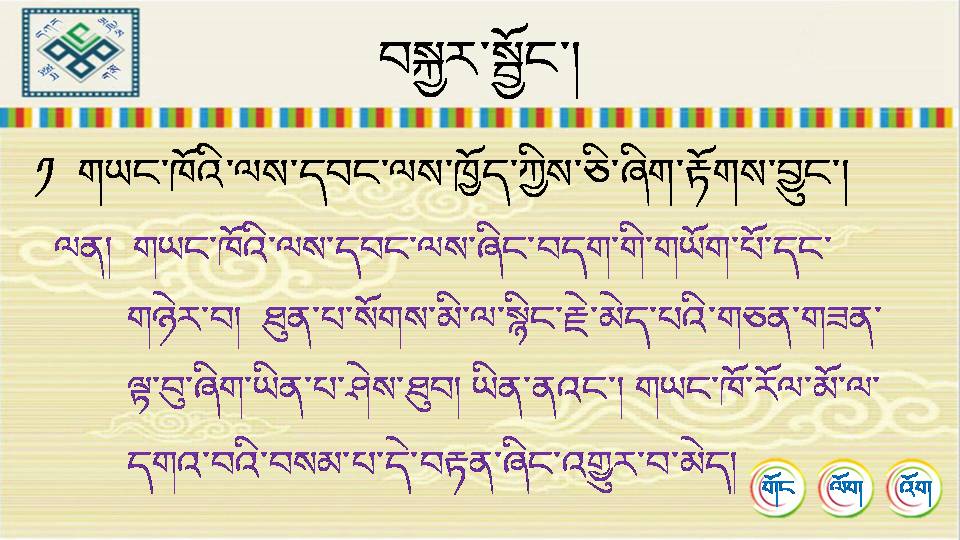 བསྐྱར་སྦྱོང་།
༡ གཡང་ཁོའི་ལས་དབང་ལས་ཁྱོད་ཀྱིས་ཅི་ཞིག་རྟོགས་བྱུང་།
ལན། གཡང་ཁོའི་ལས་དབང་ལས་ཞིང་བདག་གི་གཡོག་པོ་དང་
གཉེར་བ། ཐུན་པ་སོགས་མི་ལ་སྙིང་རྗེ་མེད་པའི་གཅན་གཟན་
ལྟ་བུ་ཞིག་ཡིན་པ་ཤེས་ཐུབ། ཡིན་ནའང་། གཡང་ཁོ་རོལ་མོ་ལ་
དགའ་བའི་བསམ་པ་དེ་བརྟན་ཞིང་འགྱུར་བ་མེད།
གོང ལོག འོག